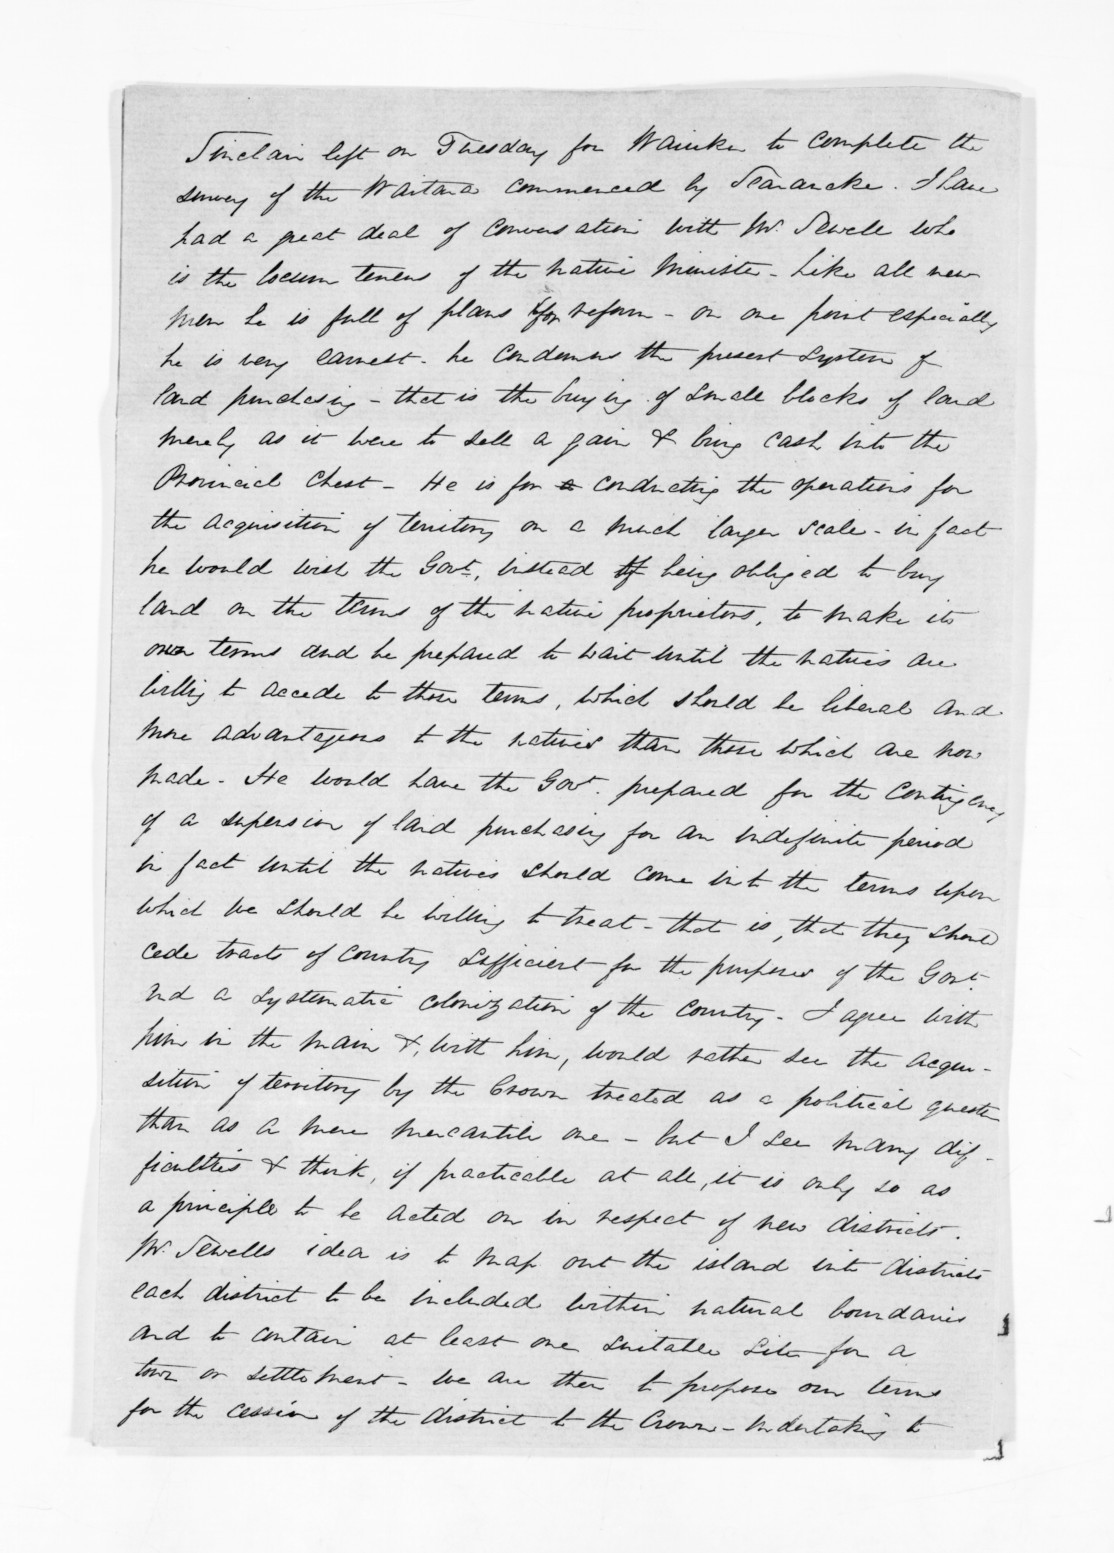 Sinclair left on Tuesday for Waiuku to complete the
survey of the Waitara commenced by Searancke. I have
had a great deal of conversation with Mr. Sewell who
is the locum tenens of the native Minister - Like all new
men he is full of plans for reform - on one point especially
he is very earnest - he condemns the present system of
land purchasing - that is the buying of small blocks of land
merely as it were to sell a gain & bring cash into the
Provincial Chest - He is for conducting the operations for
the acquisition of territory on a much larger scale - in fact
he would wish the Govt, instead of being obliged to buy
land on the terms of the native proprietors, to make its
own terms and be prepared to wait until the natives are
willing to accede to those terms, which should be liberal and
more advantageous to the natives than those which are now
made - He would have the Govt. prepared for the contingency
of a supension of land purchasing for an indefinite period
in fact until the natives should come into the terms upon
which we should be willing to treat - that is, that they should
cede tracts of country sufficient for the purposes of the Govt.
and a systematic colonization of the country - I agree with
him in the main &, with him, would rather see the acqui-
sition of territory by the Crown treated as a political question
than as a mere mercantile one - but I see many dif-
ficulties & think, if practicable at all, it is only so as
a principle to be acted on in respect of new districts.
Mr. Sewells idea is to map out the island into districts
each district to be included within natural boundaries
and to contain at least one suitable site for a
town or settlement - we are then to propose our terms
for the cession of the district to the Crown - undertaking to